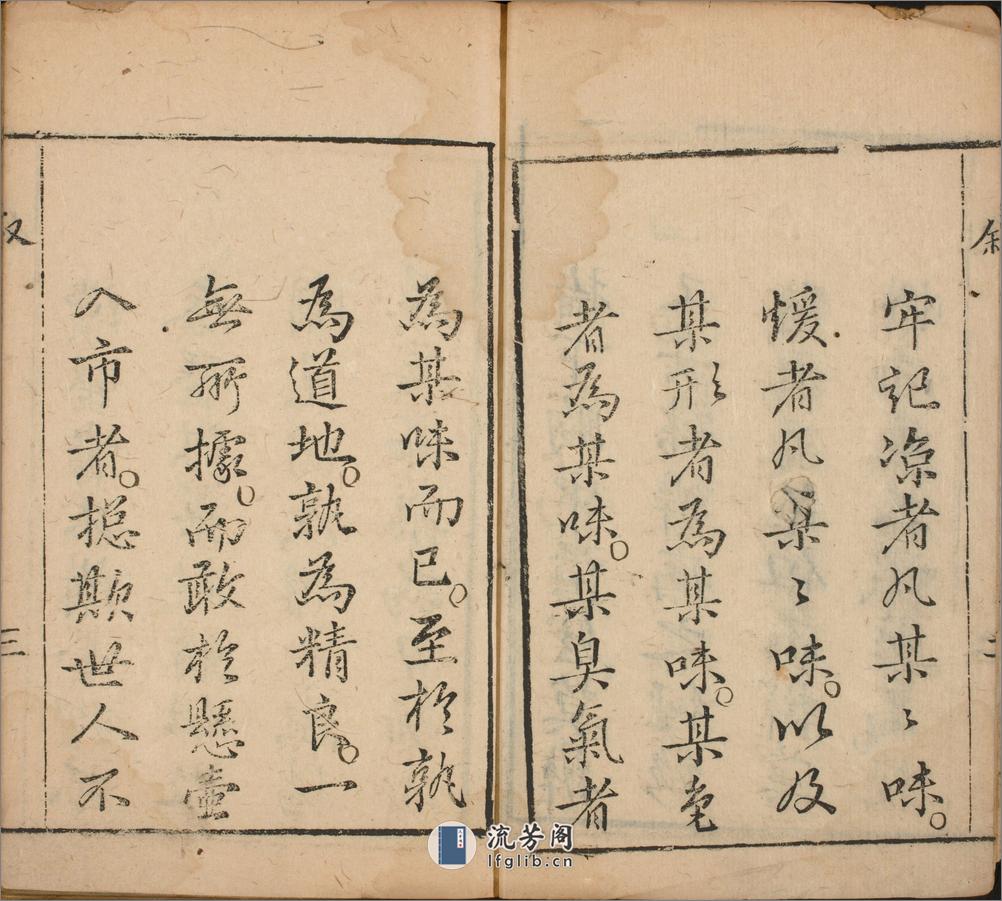 叙
牢記涼者凡某〻味。
煖者凡某〻味。以及
某形者為某味。某色
者為某味。某臭氣者
為某味而已。至於孰
為道地。孰為精良。一
無所據。而敢於懸壺
入市者。揔欺世人不
三
流芳阁
lfglib.cn